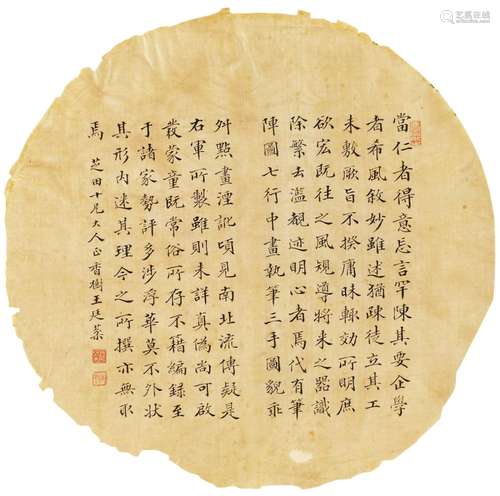 當仁者得意忘言罕陳其要企學
者希風敘妙雖述猶疎徒立其工
未敷厥旨不揆庸昧輒効所明庶
欲宏既往之風規導將来之器識
除繁去濫覩迹明心者焉代有筆
陣圖七行中畫執筆三手圖貌乖
舛點畫湮訛頃見南北流傳疑是
右軍所製雖則未詳真偽尚可啟
發蒙童既常俗所存不藉編録至
于諸家勢評多涉浮華莫不外狀
其形内迷其理今之所撰亦無取
焉 芝田十兄大人正 香樹王廷